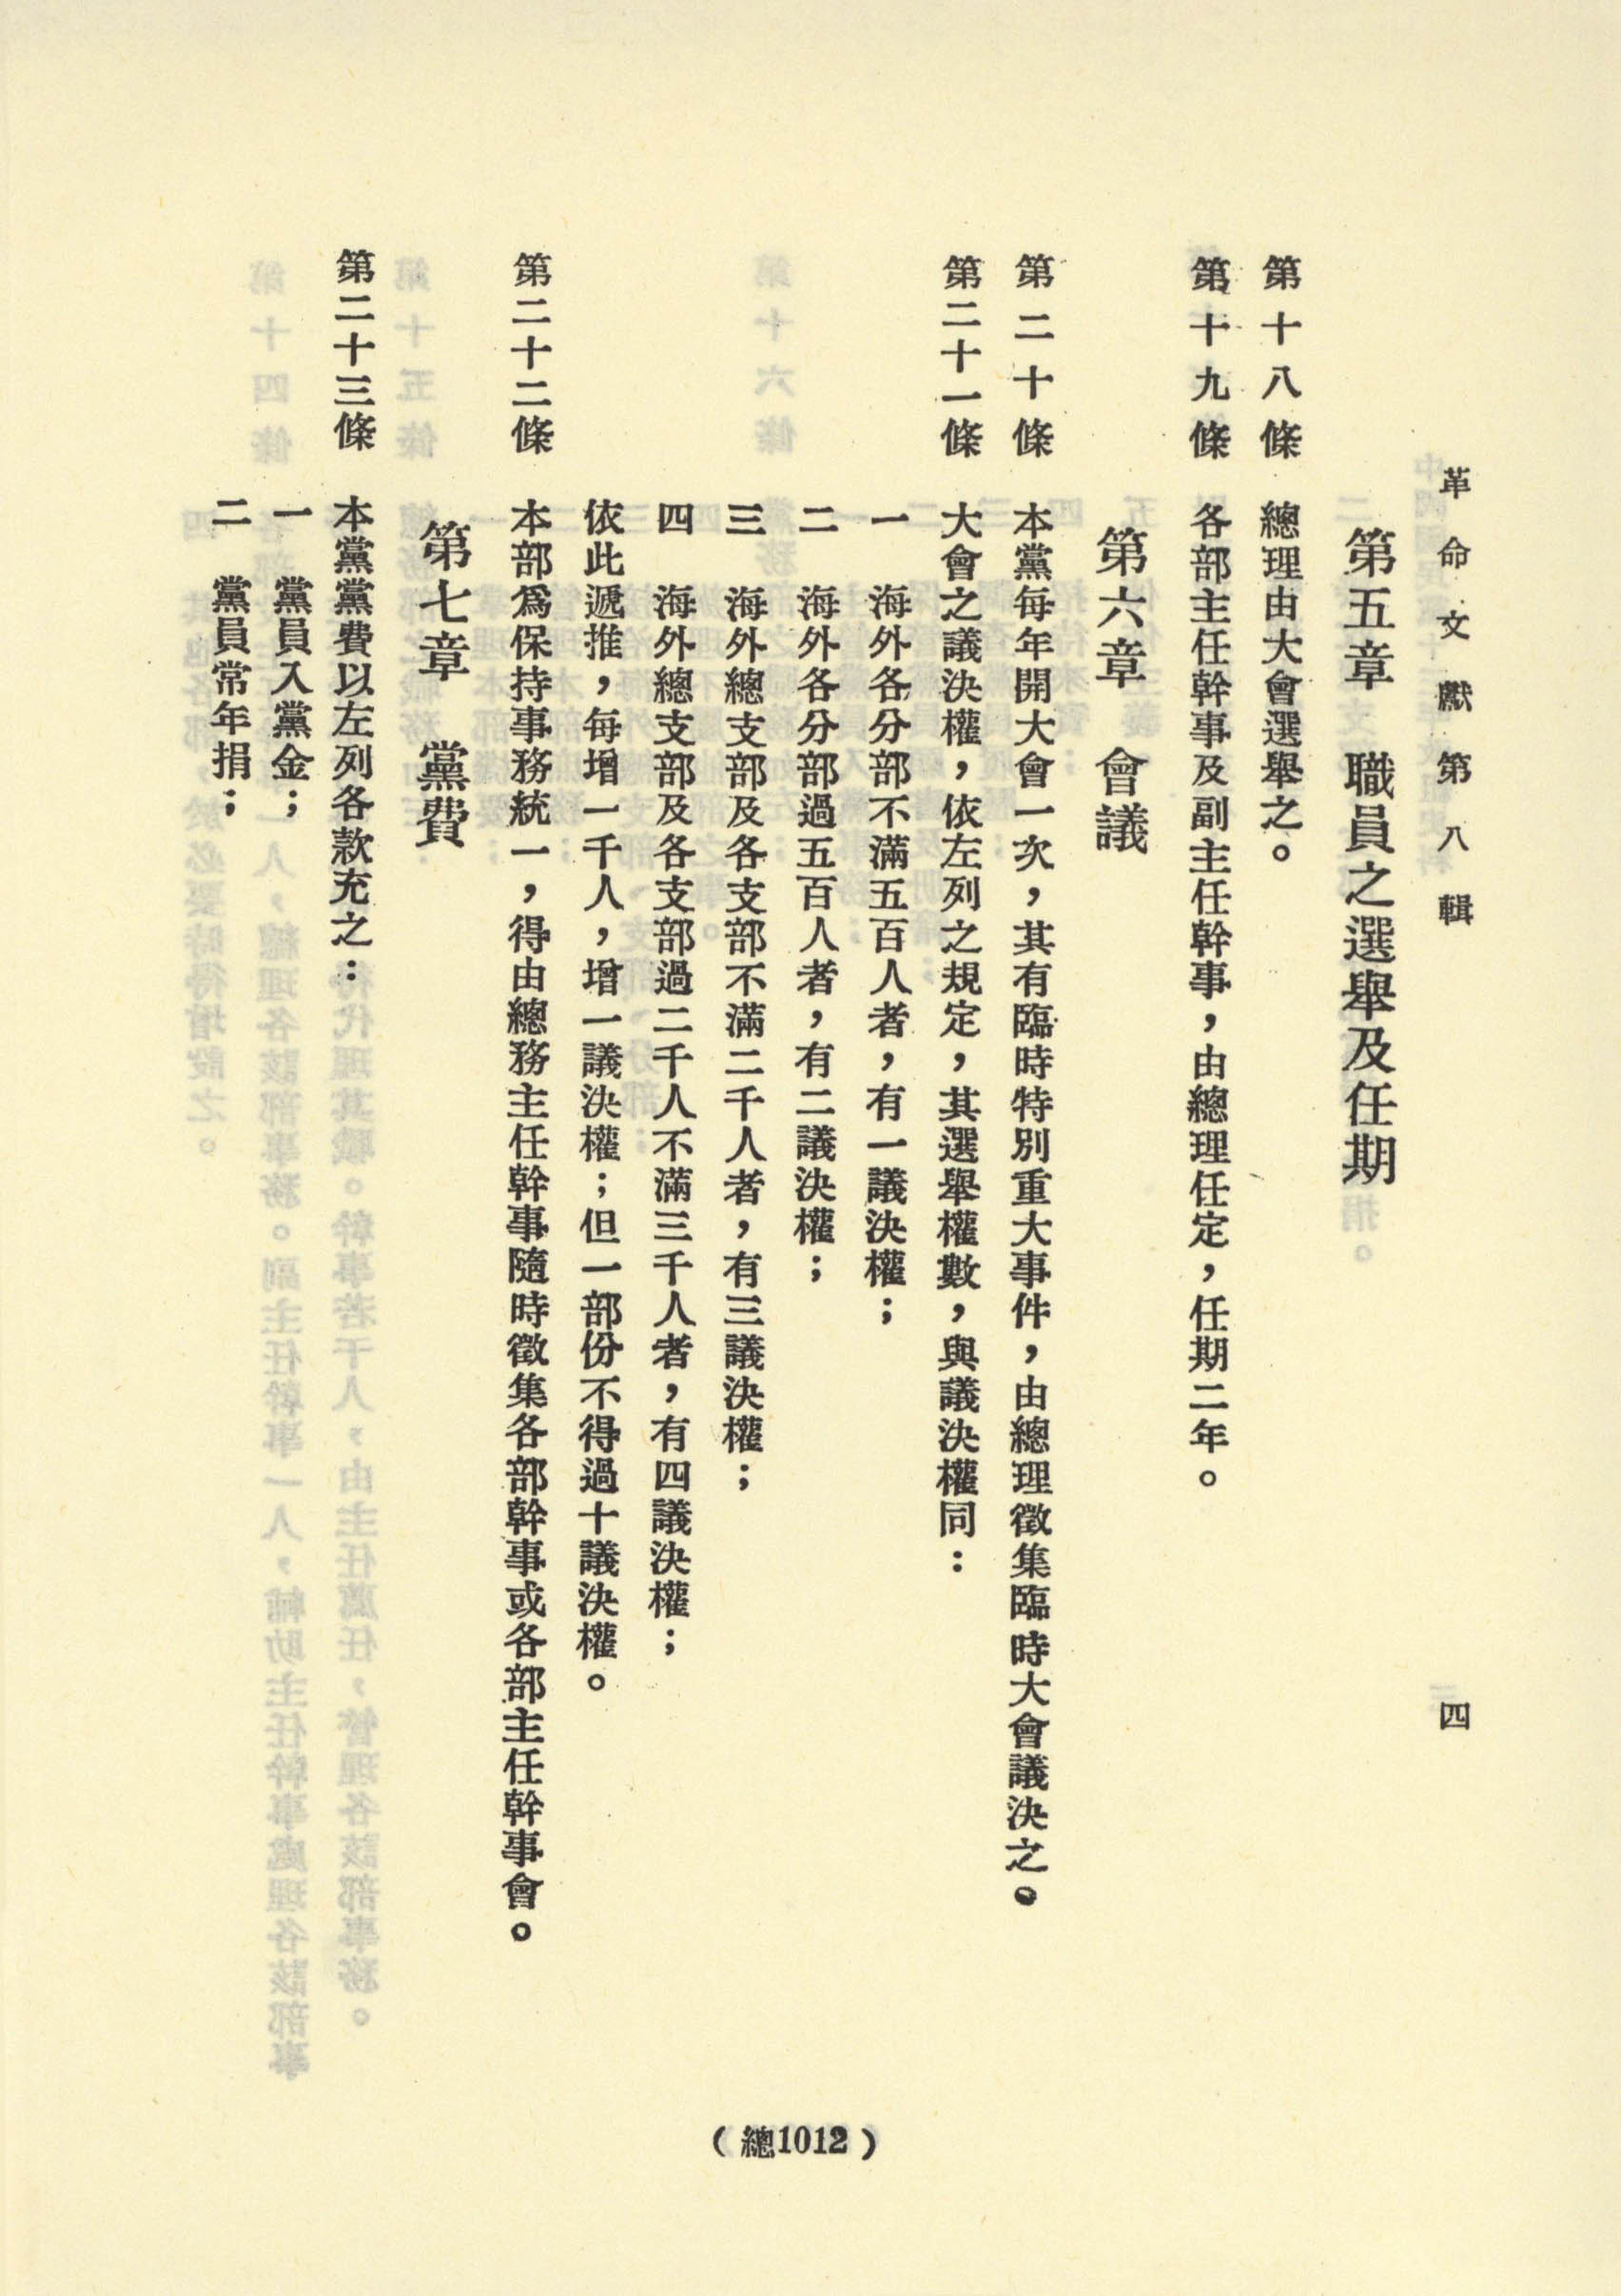 革命文獻第八輯
四
第五章　職員之選舉及任期
第十八條　總理由大會選舉之。
第十九條　各部主任幹事及副主任幹事，由總理任定，任期二年。
第六章　會議
第二十條　本黨每年開大會一次，其有臨時特別重大事件，由總理徵集臨時大會議決之。
第二十一條　大會之議決權，依左列之規定，其選舉權數，與議決權同：
一　海外各分部不滿五百人者，有一議決權；
二　海外各分部過五百人者，有二議決權；
三　海外總支部及各支部不滿二千人者，有三議決權；
四　海外總支部及各支部過二千人不滿三千人者，有四議決權；
依此遞推，每增一千人，增一議決權；但一部份不得過十議決權。
第二十二條　本部爲保持事務統一，得由總務主任幹事隨時徵集各部幹事或各部主任幹事會。
第七章　黨費
第二十三條　本黨黨費以左列各款充之：
一　黨員入黨金；
二　黨員常年捐；
（總1012）